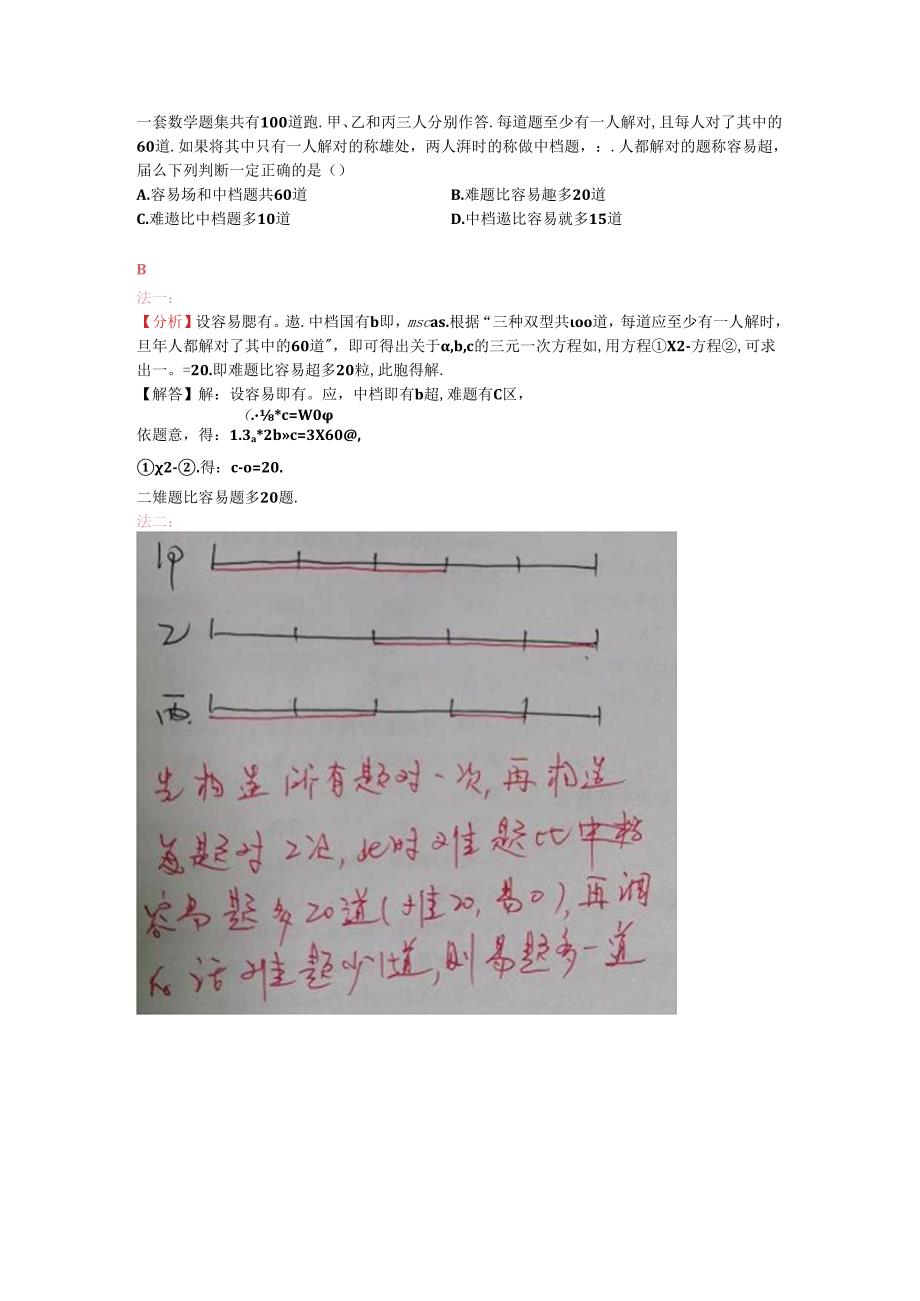 一套数学题集共有100道跑.甲、乙和丙三人分别作答.每道题至少有一人解对,且每人对了其中的
60道.如果将其中只有一人解对的称雄处，两人湃时的称做中档题，：.人都解对的题称容易超，
届么下列判断一定正确的是（）
A.容易场和中档题共60道 B.难题比容易趣多20道
C.难遨比中档题多10道 D.中档遨比容易就多15道
B
法一：
【分析】设容易腮有。遨.中档国有b即，mscas.根据“三种双型共ιoo道，每道应至少有一人解时，
旦年人都解对了其中的60道"，即可得出关于α,b,c的三元一次方程如,用方程①X2-方程②,可求
出一。=20.即难题比容易超多20粒,此胞得解.
【解答】解：设容易即有。应，中档即有b超,难题有C区，
(.·⅛*c=W0φ
依题意，得：1.3a*2b»c=3X60@,
①χ2-②.得：c-o=20.
二雉题比容易题多20题.
法二：
甲
乙
丙.
先构造所有题对一次,再构造
题对2次,此时难题比中档
容易题多20道(难20,易0),再调
话难题少1道,则易题多一道